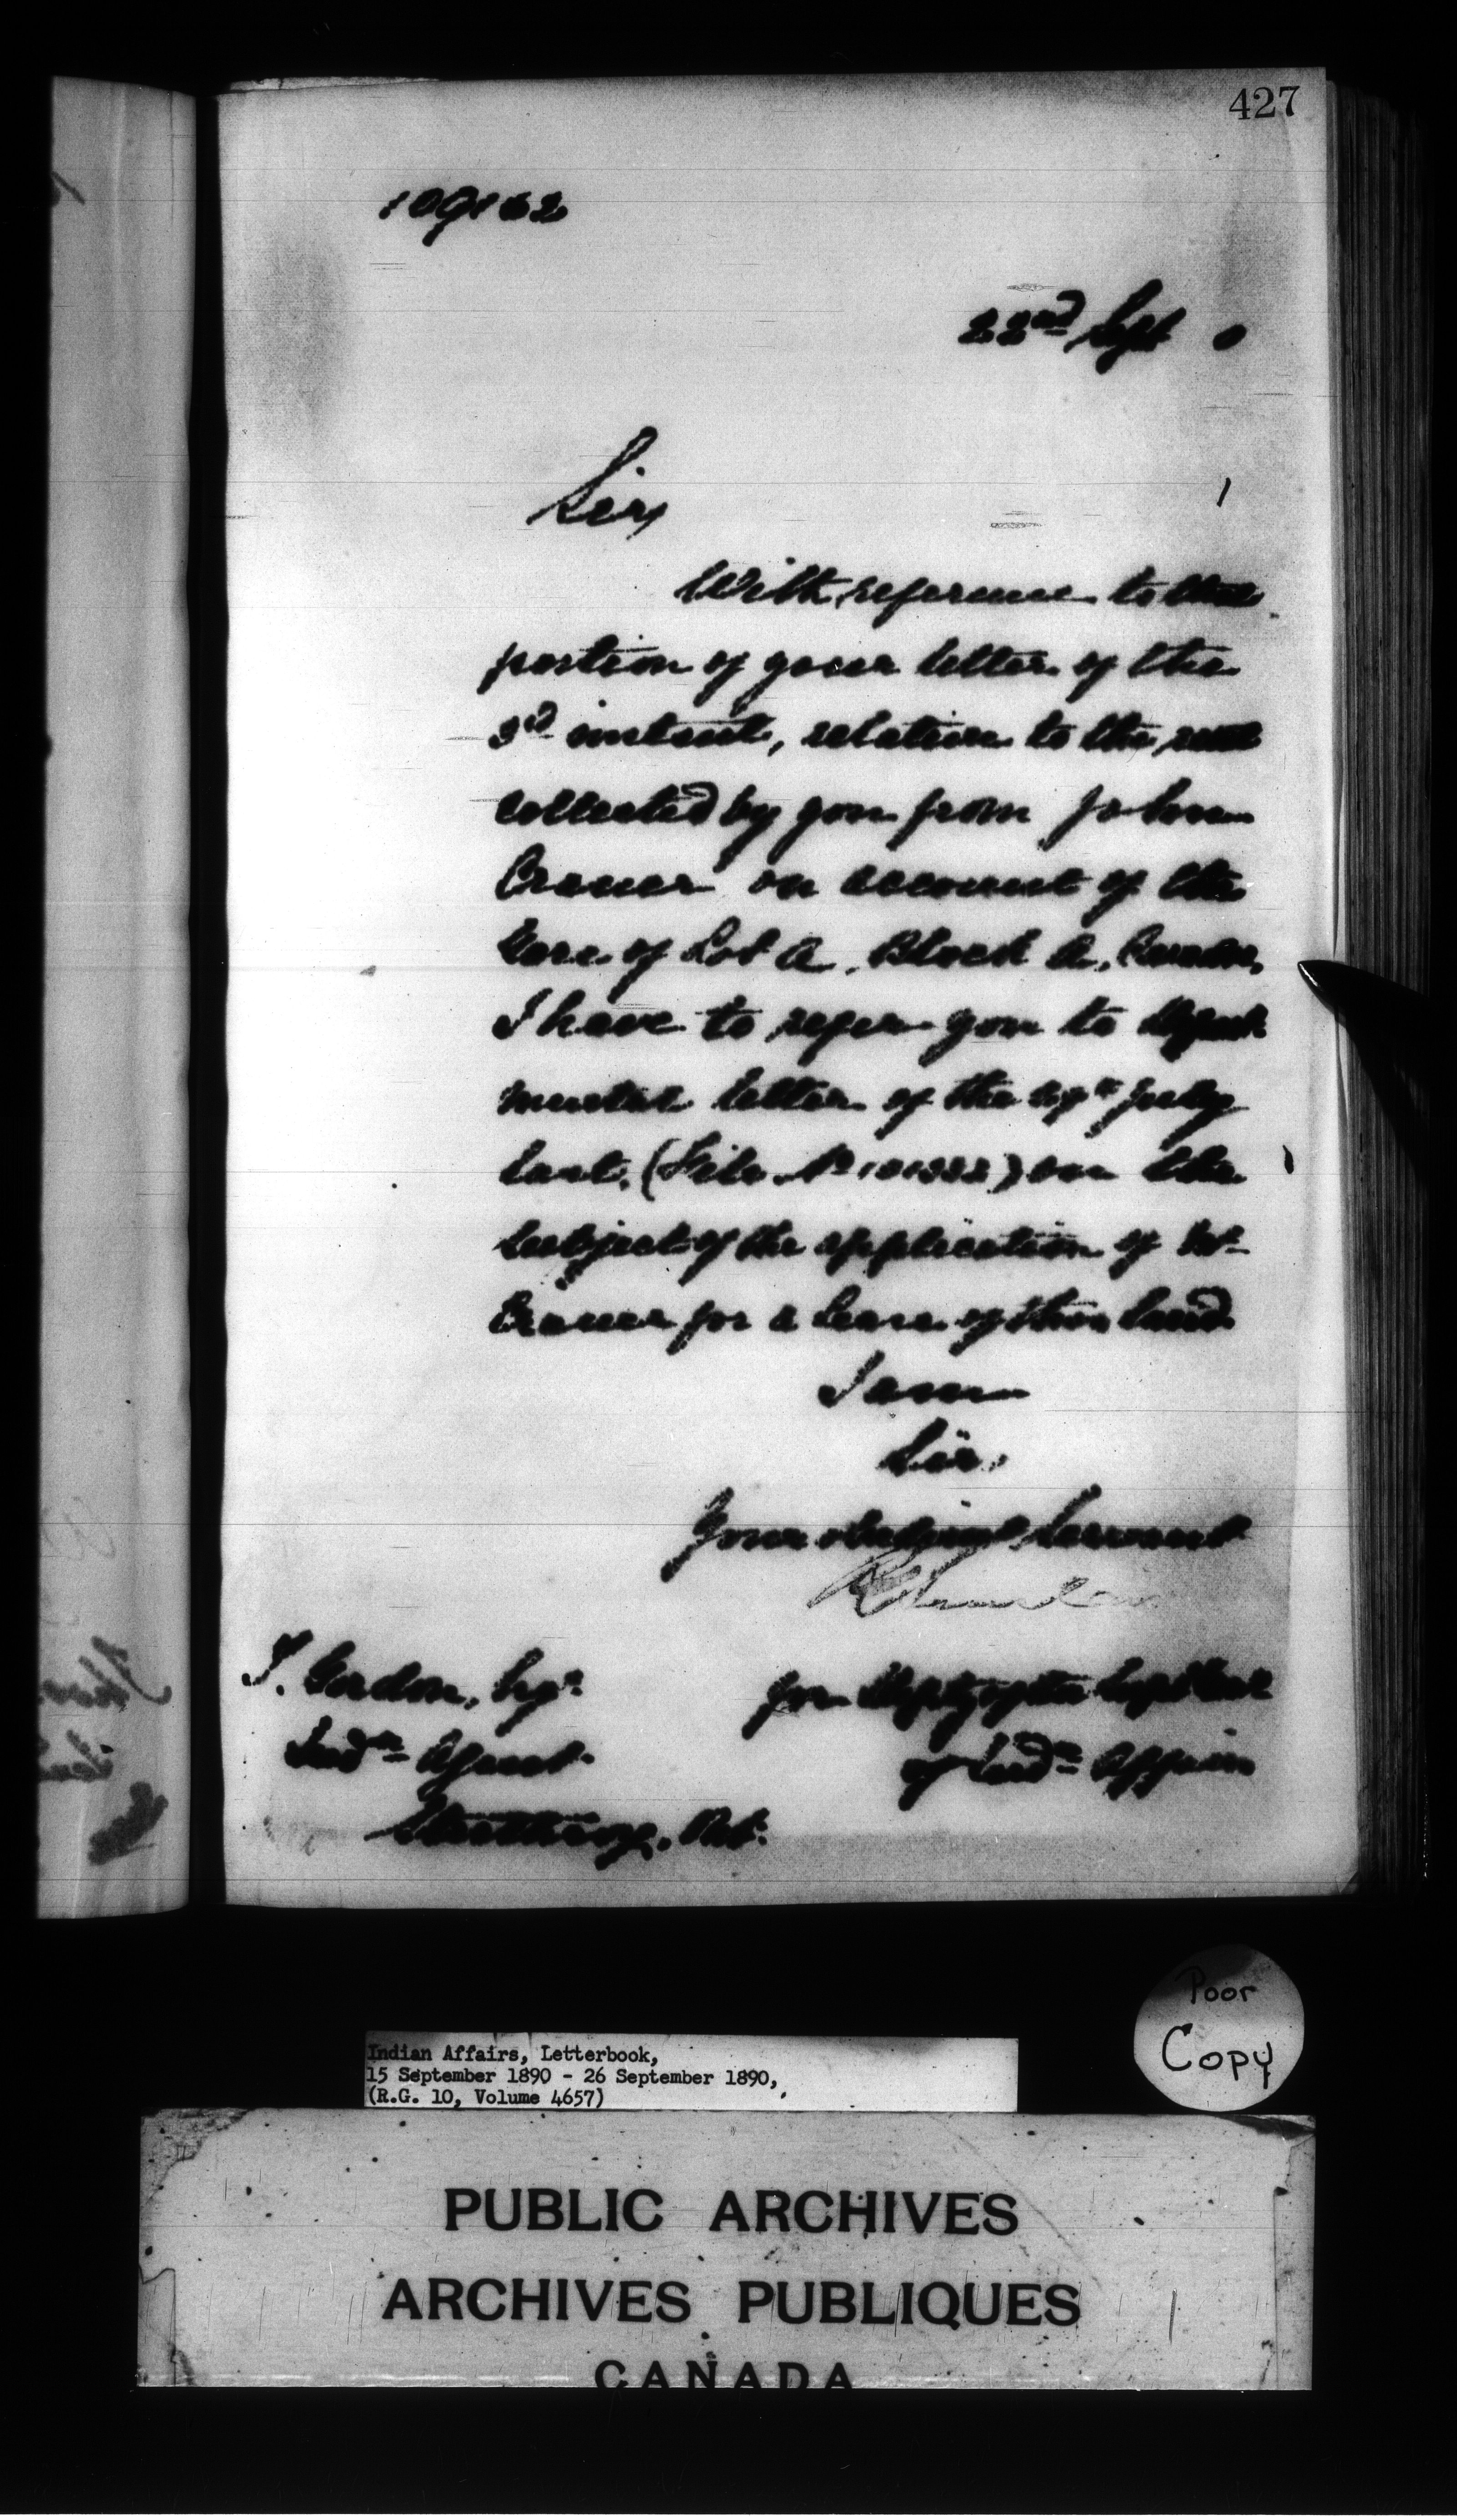 427
109162
22nd Sept 0
Sir,
With reference to that
portion of your letter of the
3d instant, relative to the rent
collected by you from John
on account of the
of Lot A, Block A,
I have to refer you to Depart
mental letter of the July
last, (File No ) on the
subject of the application of Mr
for a lease of this land.
I am
Sir,
Your obedient Servant
T. Gordon, Esqr.
Indn Agent
Strathroy, Ont.
for Deputy of the Supt Genl
of Indn Affairs
Poor
Copy
Indian Affairs, Letterbook,
15 September 1890 - 26 September 1890,
(R.G. 10, Volume 4657)
PUBLIC ARCHIVES
ARCHIVES PUBLIQUES
CANADA